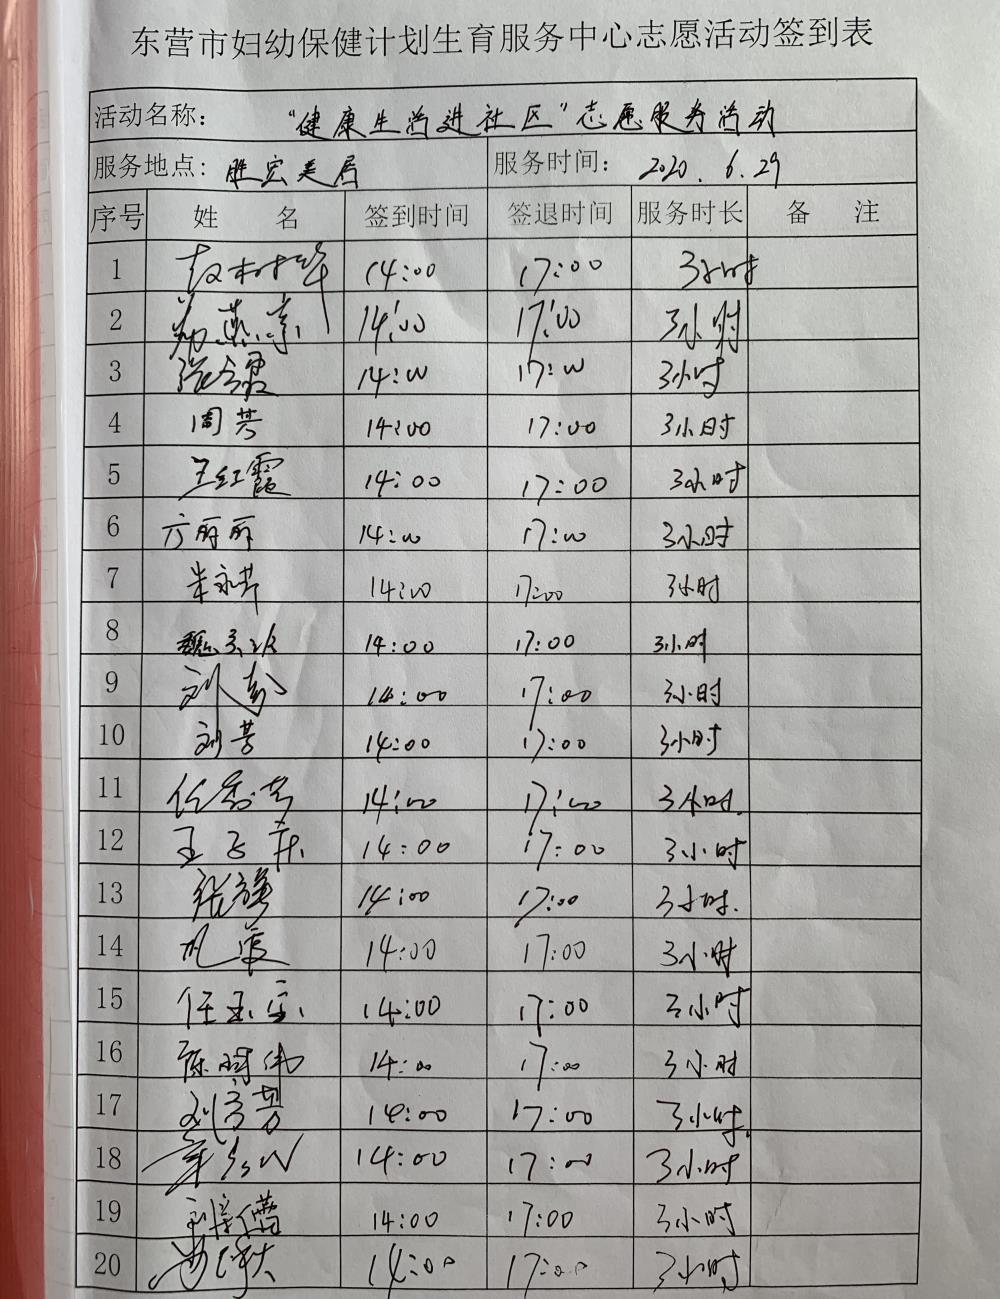 东营市妇幼保健计划生育服务中心志愿活动签到表
活动名称： “健康生活进社区”志愿服务活动
服务地点: 胜宏美居 服务时间： 2020.6.29
序号 姓 名 签到时间 签退时间 服务时长 备 注
1 14:00 17:00 3小时
2 14:00 17:00 3小时
3 14:00 17:00 3小时
4 周芳 14:00 17:00 3小时
5 王红霞 14:00 17:00 3小时
6 方丽丽 14:00 17:00 3小时
7 朱永芹 14:00 17:00 3小时
8 14:00 17:00 3小时
9 刘彭 14:00 17:00 3小时
10 刘芳 14:00 17:00 3小时
11 任香芝 14:00 17:00 3小时.
12 王 14:00 17:00 3小时
13 张 14:00 17:00 3小时.
14 14:00 17:00 3小时
15 任玉 14:00 17:00 3小时
16 陈 伟 14:00 17:00 3小时
17 刘 14:00 17:00 3小时.
18 14:00 17:00 3小时
19 刘 14:00 17:00 3小时
20 14:00 17:00 3小时